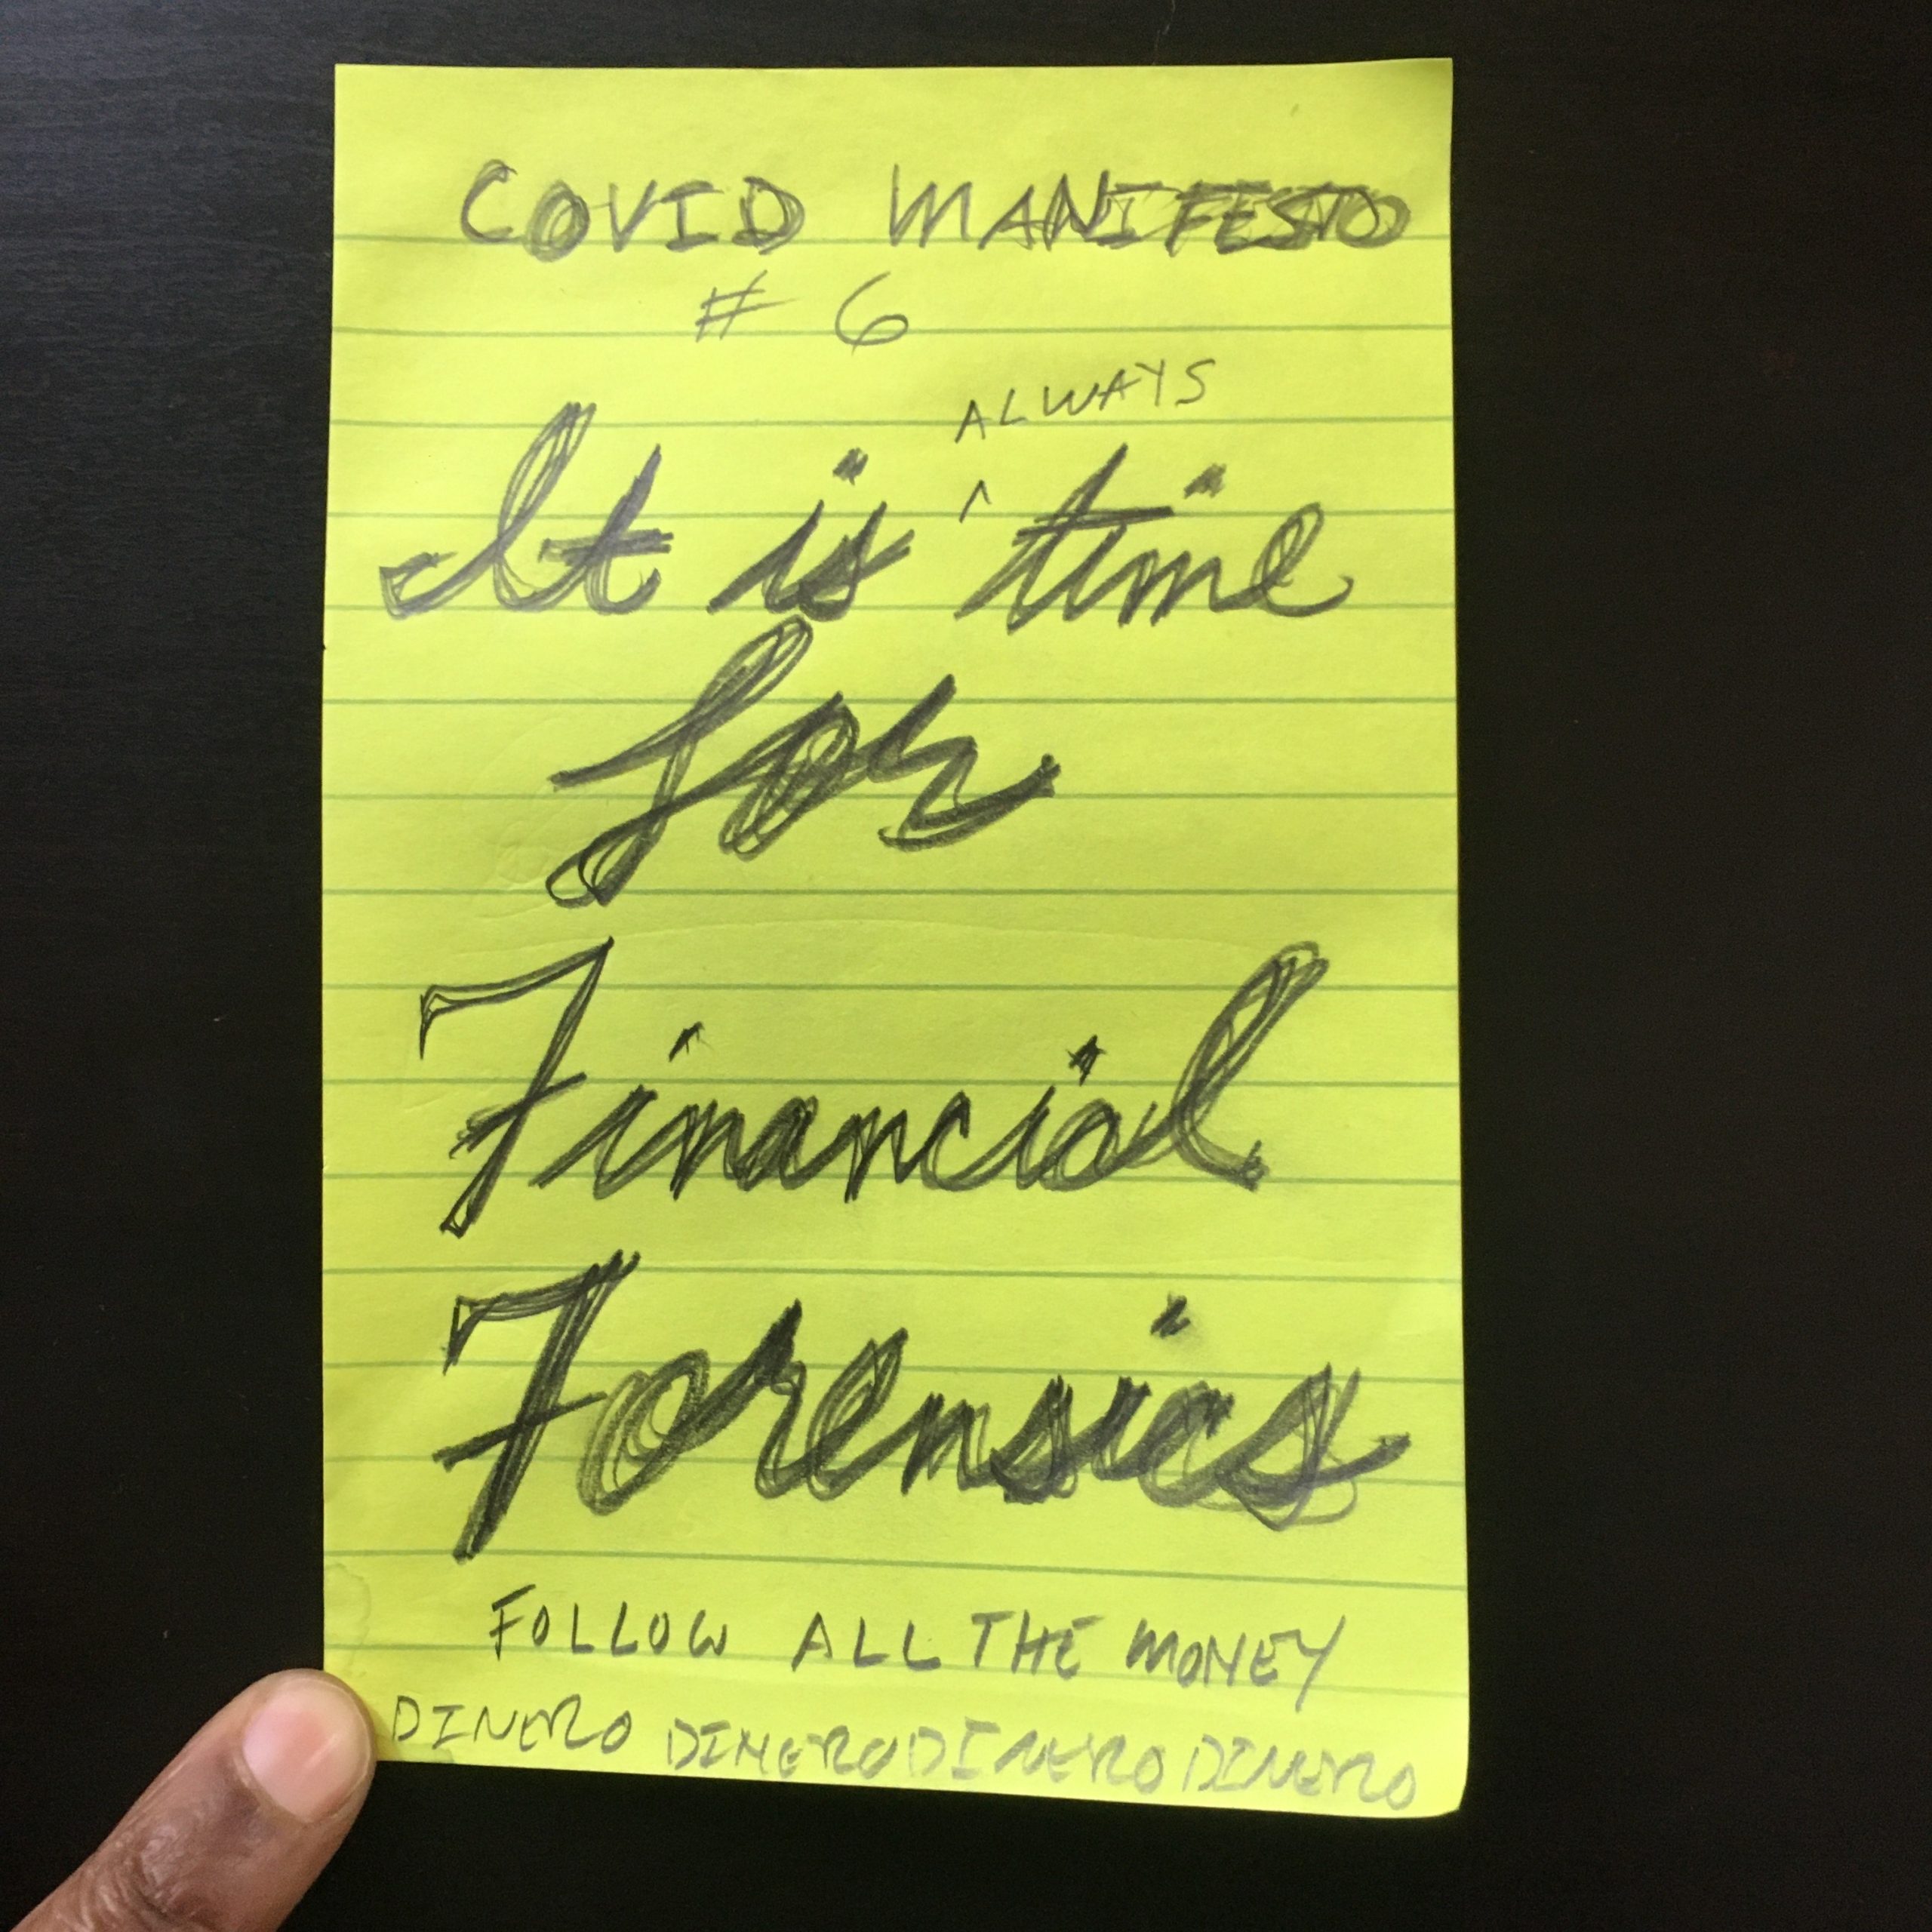 COVID MANIFESTO
# 6
ALWAYS
It is ^ time
for
Financial
Forensics
FOLLOW ALL THE MONEY
DINERO DINERO DINERO DINERO